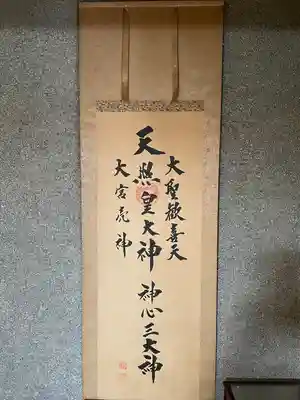 大聖歓喜天
天照皇大神
神心三大神
大宮㐬神